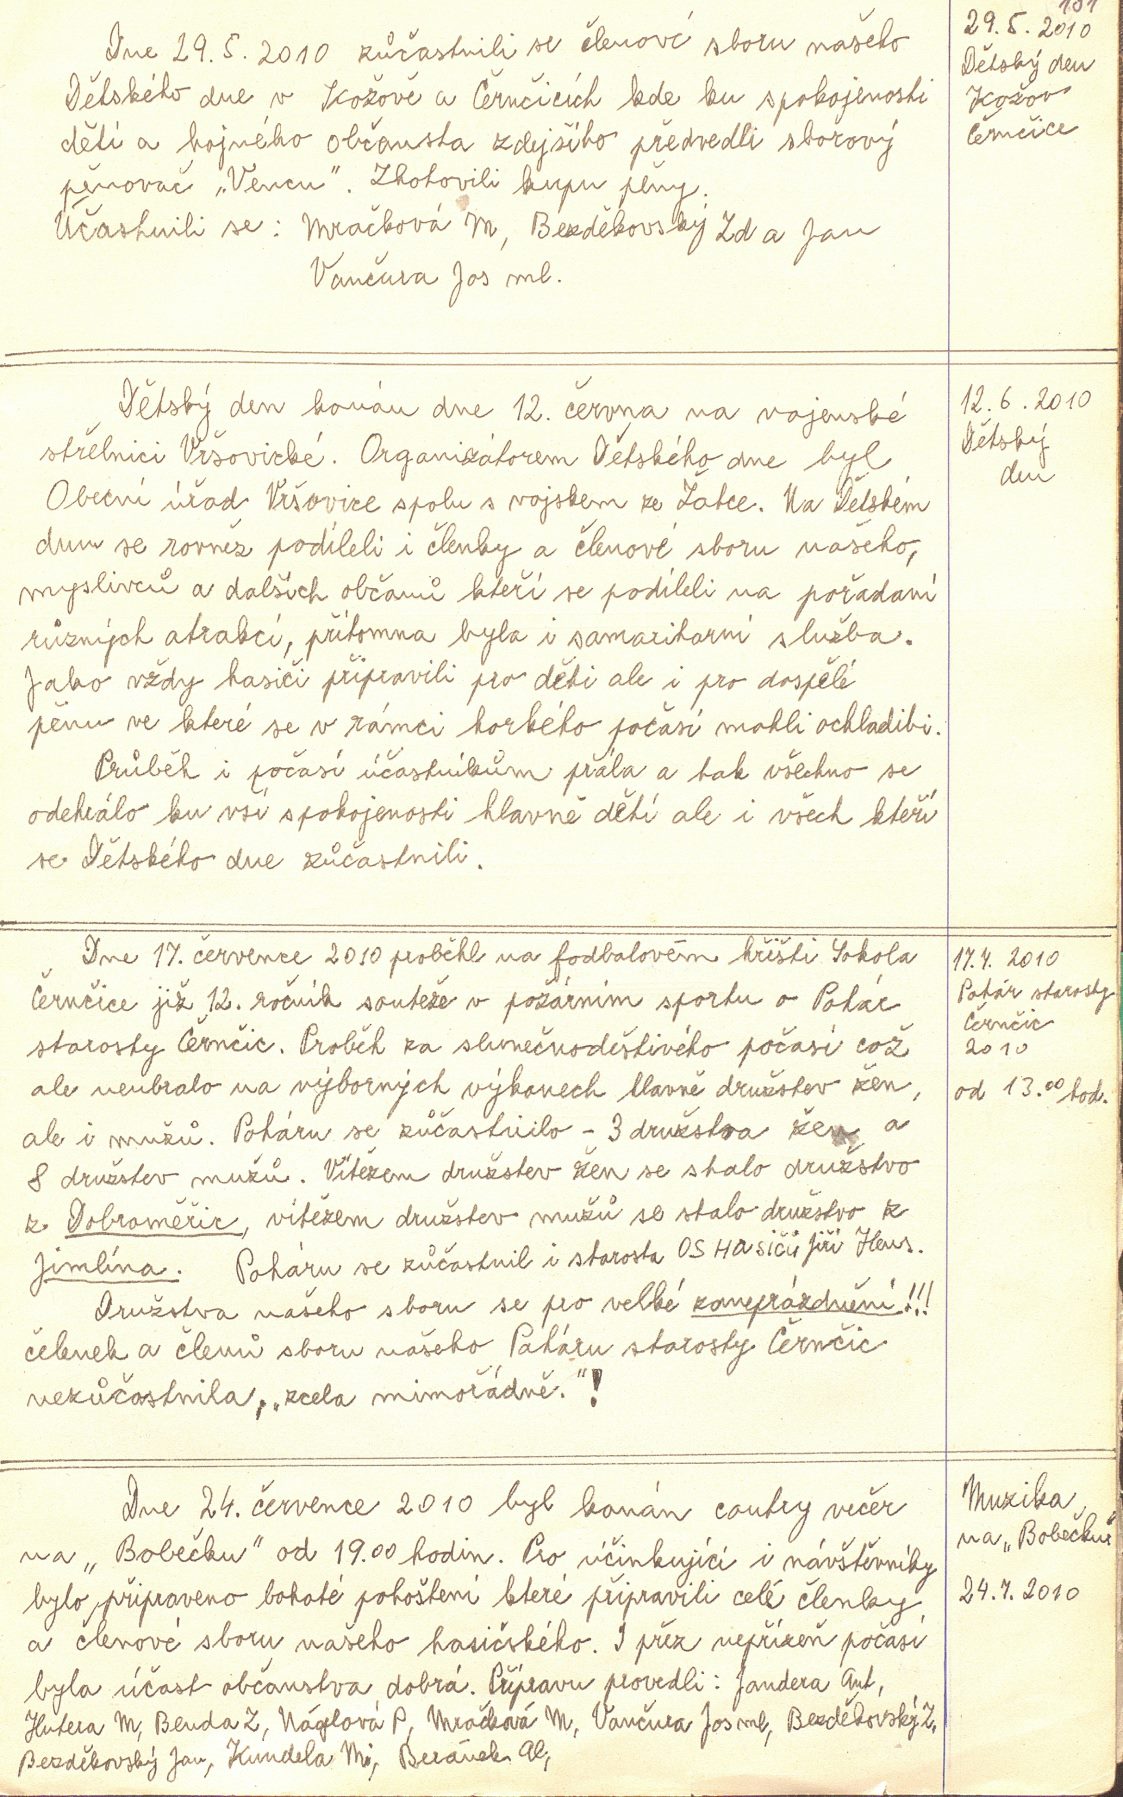 131
Dne 29.5.2010 zůčastnili se členové sboru našeho
Dětského dne v Kožově a Černčicích kde ku spokojenosti
dětí a hojného občansta zdejšího předvedli sborový
pěnovač „Vencu". Zhotovili kupu pěny.
Účastnili se: Mračková M, Bezděkovský Zd a Jan
Vančura Jos ml.
29.5.2010
Dětský den
Kožov
Černčice
Dětský den konán dne 12. června na vojenské
střelnici Vršovické. Organizátorem Dětského dne byl
Obecní úřad Vršovice spolu s vojskem ze Žatce. Na Dětském
dnu se rovněž podíleli i členky a členové sboru našeho,
myslivců a dalších občanů kteří se podíleli na pořadaní
různých atrakcí, přítomna byla i samaritarní služba.
Jako vždy hasiči připravili pro děti ale i pro dospělé
pěnu ve které se v rámci horkého počasí mohli ochladibi.
Průběh i počasí účastníkům přála a tak všechno se
odehrálo ku vší spokojenosti hlavně dětí ale i všech kteří
se Dětského dne zůčastnili.
12.6.2010
Dětský
den
Dne 17. července 2010 proběhl na fodbalovém hřišti Sokola
Černčice již 12. ročník souteže v požárním sportu o Pohár
starosty Černčic. Proběh za slunečnodeštivého počasí což
ale neubralo na výborných výkonech hlavně družstev žen,
ale i mužů. Poháru se zůčastnilo - 3 družstva žen a
8 družstev mužů. Vítězem družstev žen se stalo družstvo
z Dobroměřic, vítězem družstev mužů se stalo družstvo z
Jimlína. Poháru se zůčastnil i starosta OSHasičů Jiří Heus.
Družstva našeho sboru se pro velké zaneprázdnění!!!
čelenek a členů sboru našeho Poháru starosty Černčic
nezůčastnila, „zcela mimořádně."!
17.7.2010
Pohár starosty
Černčic
2010
od 13.00 hod.
Dne 24. července 2010 byl konán coutry večer
na „Bobečku" od 19.00 hodin. Pro účinkující i návštěvníky
bylo připraveno bohaté pohoštení které připravili celé členky
a členové sboru našeho hasičského. I přez nepřízeň počasí
byla účast občanstva dobrá. Přípravu provedli: Jandera Ant,
Hutera M, Benda Z, Náglová P, Mračková M, Vančura Jos ml, Bezděkovský Z,
Bezděkovský Jan, Kundela Mi, Beránek Al,
Muzika
na „Bobečku"
24.7.2010